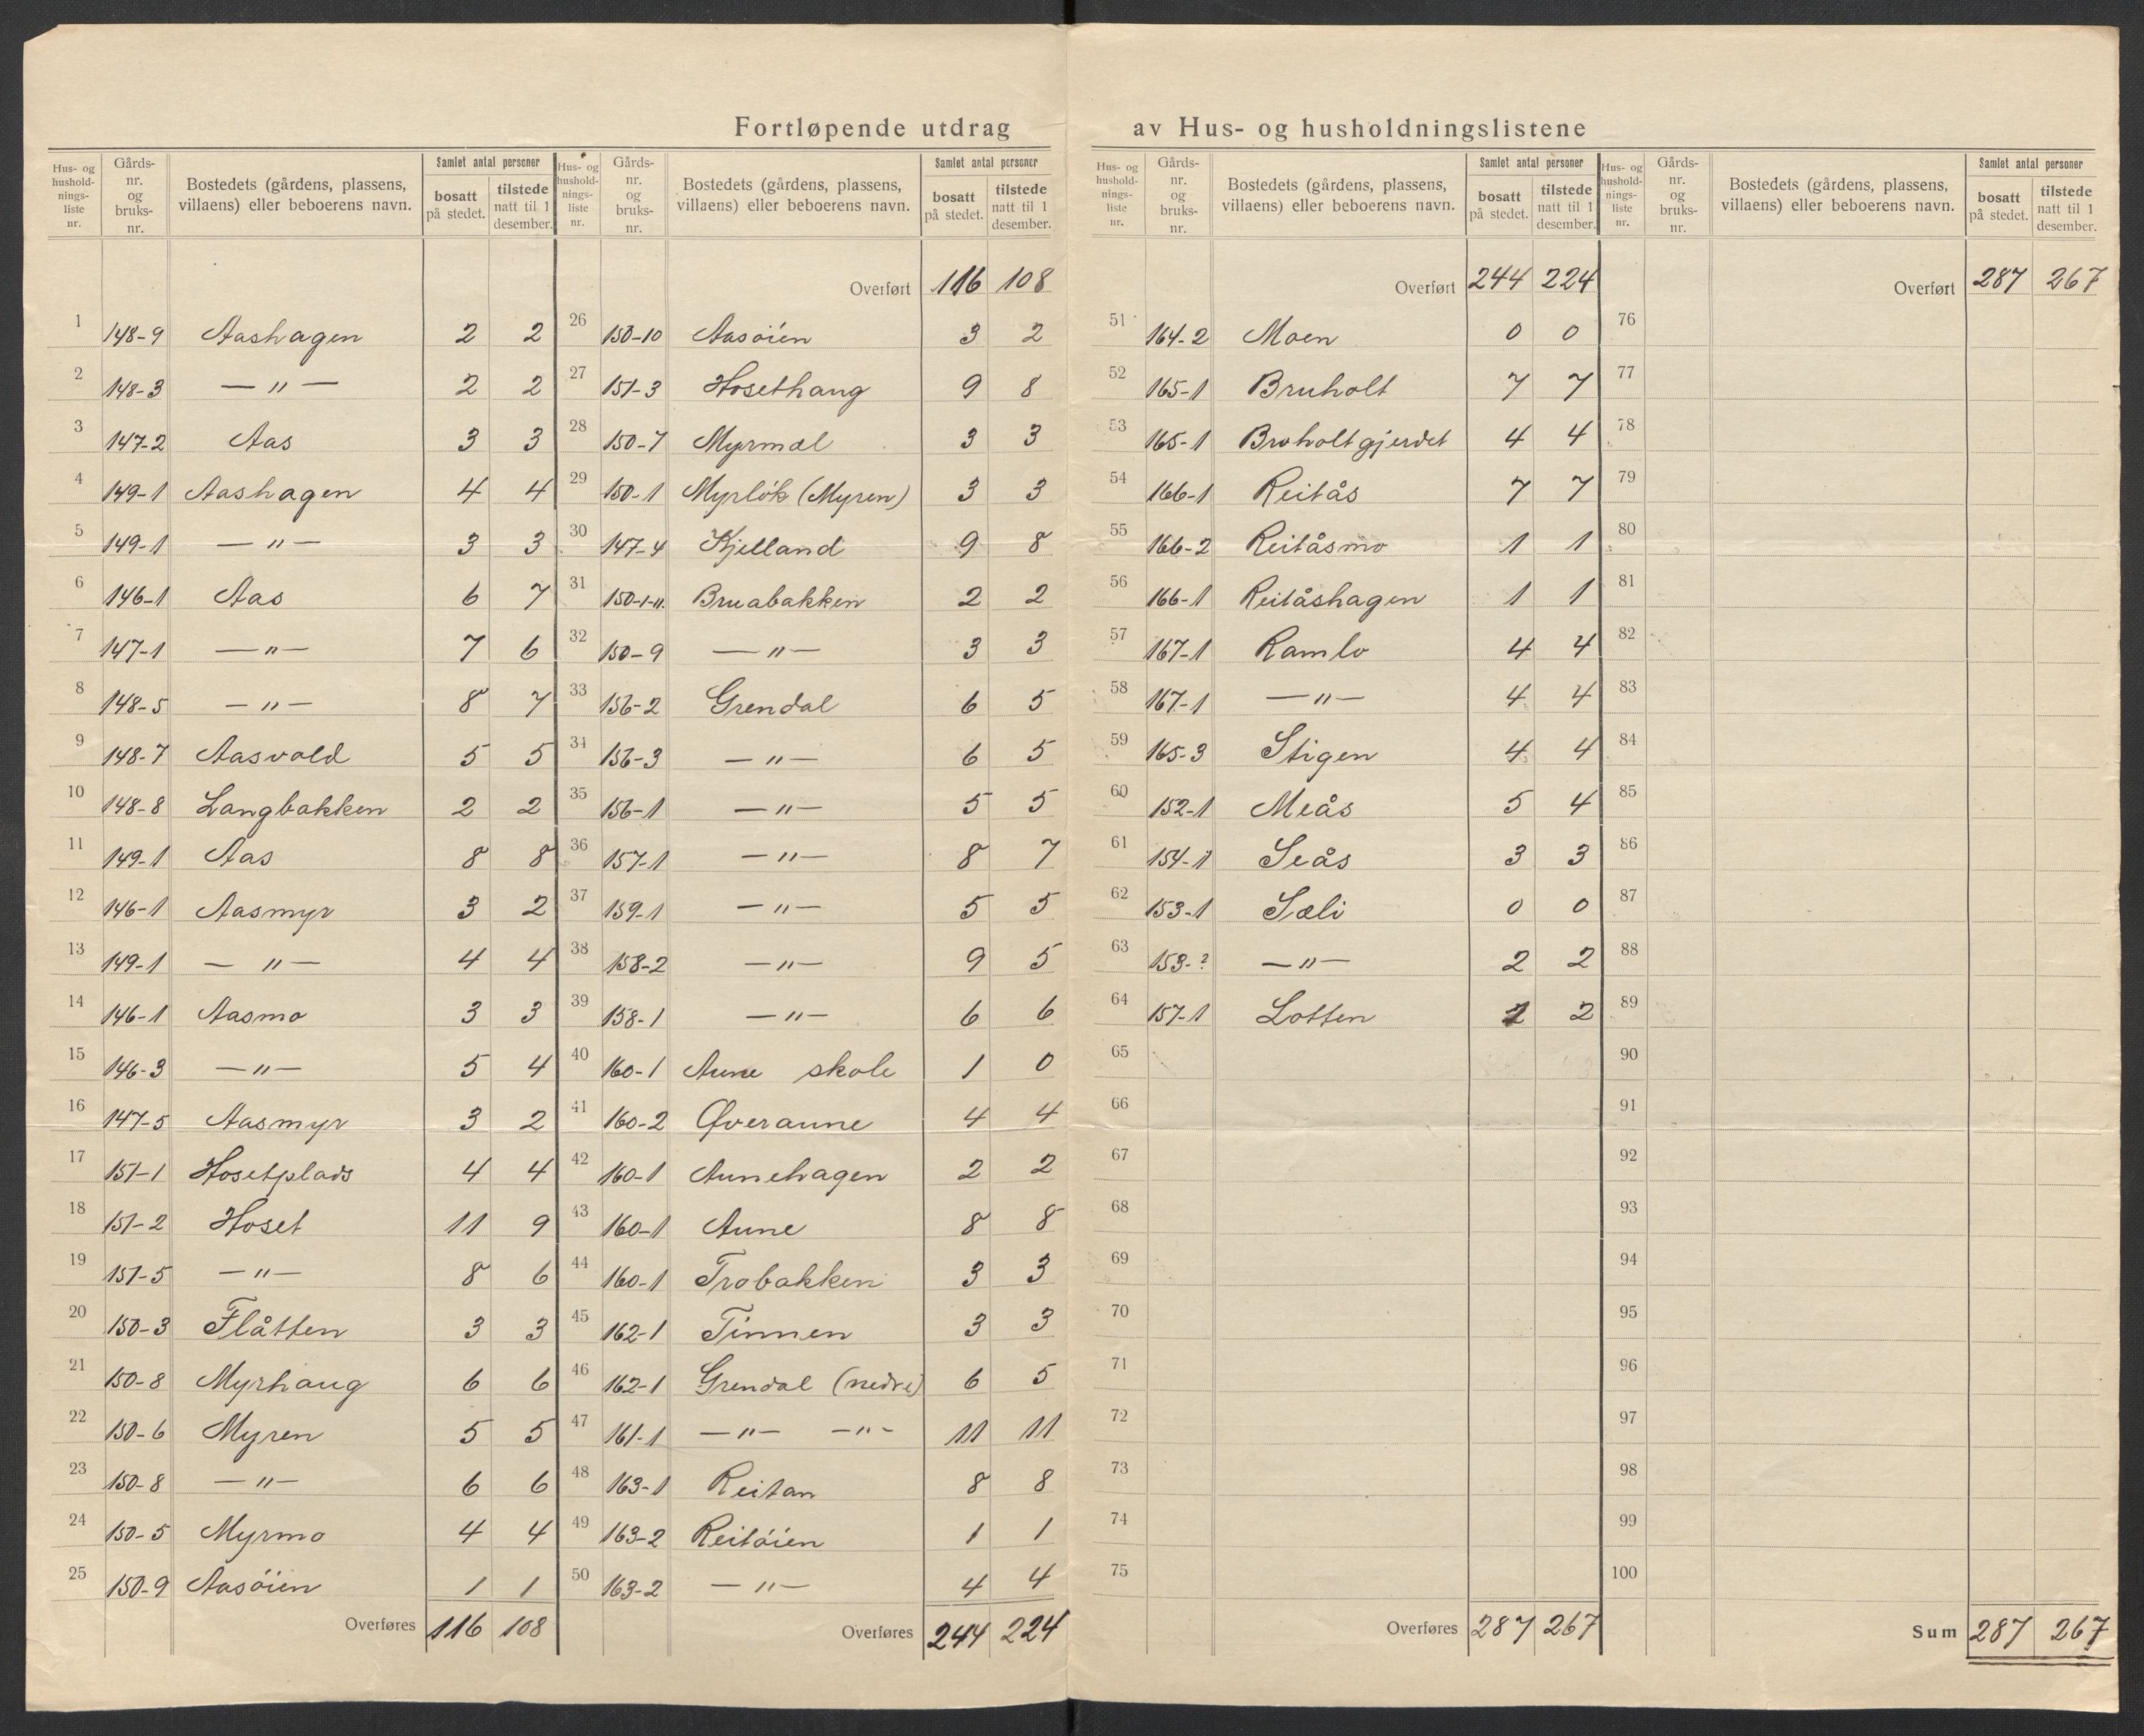 Fortløpende utdrag av Hus- og husholdningslistene
Hus- og hushold-nings-liste nr. | Gårds-nr. og bruks-nr. | Bostedets (gårdens, plassens, villaens) eller beboerens navn. | Samlet antal personer | bosatt på stedet. | tilstede natt til 1 desember.
1 148-9 Aashagen 2 2
2 148-3 — " — 2 2
3 147-2 Aas 3 3
4 149-1 Aashagen 4 4
5 149-1 — " — 3 3
6 146-1 Aas 6 7
7 147-1 — " — 7 6
8 148-5 — " — 8 7
9 148-7 Aasvold 5 5
10 148-8 Langbakken 2 2
11 149-1 Aas 8 8
12 146-1 Aasmyr 3 2
13 149-1 — " — 4 4
14 146-1 Aasmo 3 3
15 146-3 — " — 5 4
16 147-5 Aasmyr 3 2
17 151-1 Hosetplads 4 4
18 151-2 Hoset 11 9
19 151-5 — " — 8 6
20 150-3 Flåtten 3 3
21 150-8 Myrhaug 6 6
22 150-6 Myren 5 5
23 150-8 — " — 6 6
24 150-5 Myrmo 4 4
25 150-9 Aasöien 1 1
Overføres 116 108
Hus- og hushold-nings-liste nr. | Gårds-nr. og bruks-nr. | Bostedets (gårdens, plassens, villaens) eller beboerens navn. | Samlet antal personer | bosatt på stedet. | tilstede natt til 1 desember.
Overført 116 108
26 150-10 Aasöien 3 2
27 151-3 Hosethaug 9 8
28 150-7 Myrmæl 3 3
29 150-1 Myrlök (Myren) 3 3
30 147-4 Kjelland 9 8
31 150-1-11. Bruabakken 2 2
32 150-9 — " — 3 3
33 156-2 Grendal 6 5
34 156-3 — " — 6 5
35 156-1 — " — 5 5
36 157-1 — " — 8 7
37 159-1 — " — 5 5
38 158-2 — " — 9 5
39 158-1 — " — 6 6
40 160-1 Aune skole 1 0
41 160-2 Øveraune 4 4
42 160-1 Aunehagen 2 2
43 160-1 Aune 8 8
44 160-1 Trobakken 3 3
45 162-1 Tinnen 3 3
46 162-1 Grendal (nedre) 6 5
47 161-1 — " — — " — 11 11
48 163-1 Reitan 8 8
49 163-2 Reitöien 1 1
50 163-2 — " — 4 4
Overføres 244 224
Hus- og hushold-nings-liste nr. | Gårds-nr. og bruks-nr. | Bostedets (gårdens, plassens, villaens) eller beboerens navn. | Samlet antal personer | bosatt på stedet. | tilstede natt til 1 desember.
Overført 244 224
51 164-2 Moen 0 0
52 165-1 Bruholt 7 7
53 165-1 Broholtgjerdet 4 4
54 166-1 Reitås 7 7
55 166-2 Reitåsmo 1 1
56 166-1 Reitåshagen 1 1
57 167-1 Ramlo 4 4
58 167-1 — " — 4 4
59 165-3 Stigen 4 4
60 152-1 Meås 5 4
61 154-1 Seås 3 3
62 153-1 Sæli 0 0
63 153-? — " — 2 2
64 157-1 Lotten 2
65
66
67
68
69
70
71
72
73
74
75
Overføres 287 267
Hus- og hushold-nings-liste nr. | Gårds-nr. og bruks-nr. | Bostedets (gårdens, plassens, villaens) eller beboerens navn. | Samlet antal personer | bosatt på stedet. | tilstede natt til 1 desember.
Overført 287 267
76
77
78
79
80
81
82
83
84
85
86
87
88
89
90
91
92
93
94
95
96
97
98
99
100
Sum 287 267